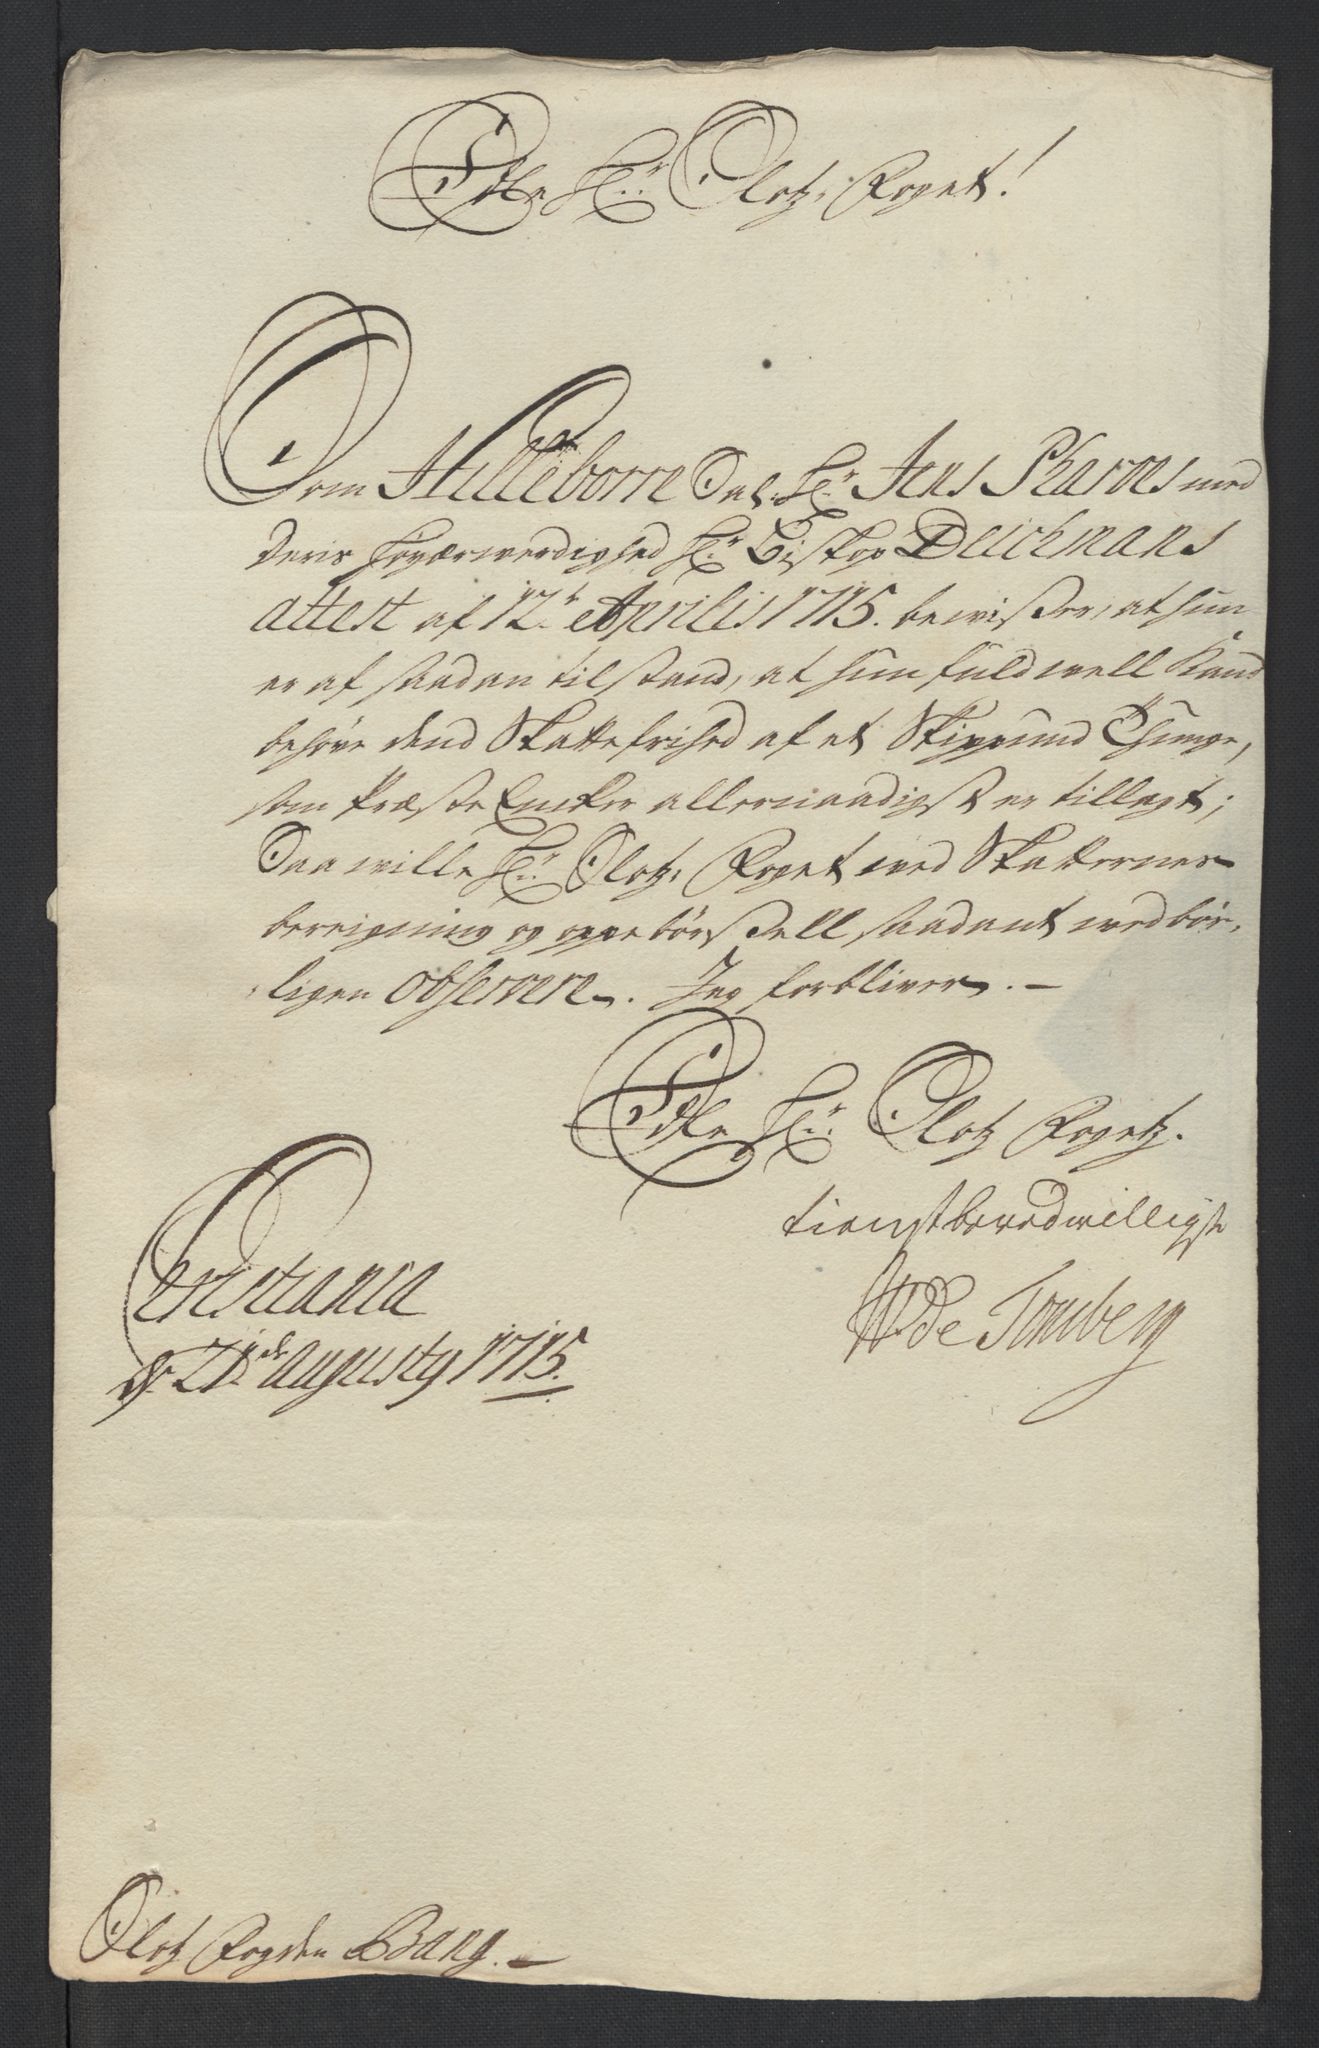 Edle Hr: Slotz-Foget!
Som Hilleborre Sal: Hr: Jens Pharoes med
Deris Høyærwerdighed Hr: Biskop Deichmans
attest af 12te Aprilis 1715. bewiser, at hun
er af saadan tilstand, at hun fuldwell kand
behøve dend Skattefrihed af et Skippund Thunge,
som Præste Encker allernaadigst er tillagt;
Saa wille Hr: Slotz-Foget wed Skatternes
beregning og oppebørsell saadant wedbør-
ligen observere. Jeg forbliver. —
Edle Hr: Slotz Fogetz.
tienstberedwilligste
W de Tonsberg
Christiania
d. 21de Augusty 1715.
Slotz Fogden Bang. —